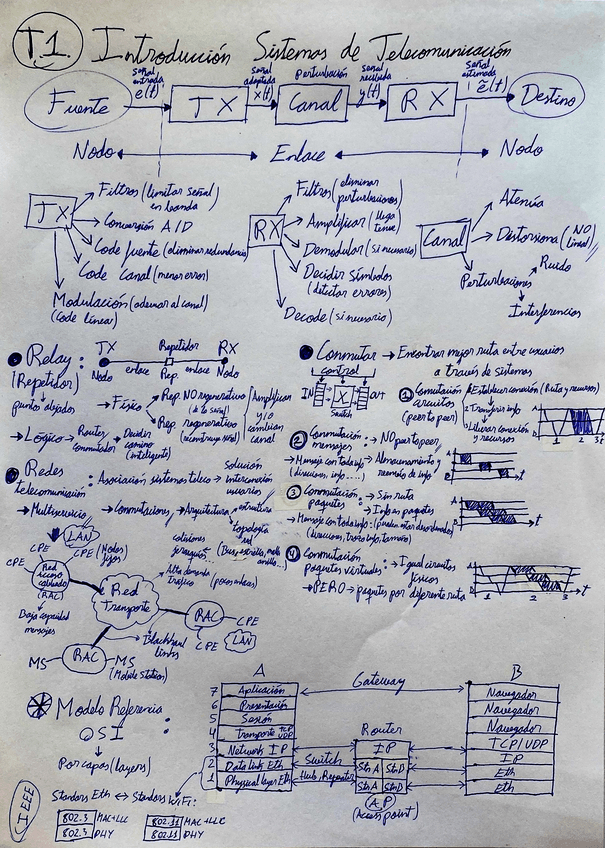 T.1. Introducción Sistemas de Telecomunicación
señal entrada e(t)
señal adaptada x(t)
perturbación
señal recibida y(t)
señal estimada ẽ(t)
Fuente TX Canal RX Destino
Nodo Enlace Nodo
TX
Filtros (limitar señal en banda)
Conversión A/D
Code fuente (eliminar redundancia)
Code Canal (menor error)
Modulación (adecuar al canal)
(Code línea)
RX
Filtros (eliminar perturbaciones)
Amplificar (llega tenue)
Demodular (si necesario)
Decidir Símbolos
(detectar errores)
Decode (si necesario)
Canal
Atenúa
Distorsiona (NO lineal)
Perturbaciones
Ruido
Interferencias
Relay (Repetidor) :
TX Repetidor RX
Nodo enlace Rep. enlace Nodo
puntos alejados
→ Físico
Rep. NO regenerativo
Rep. regenerativo
(reconstruye señal)
Amplifican y/o cambian canal
→ Lógico → Router Conmutador → Decidir camino (inteligente)
Conmutar → Encontrar mejor ruta entre usuarios
a través de sistemas
control
IN X OUT
Switch
1 Conmutación circuitos
(peer to peer)
1 Establecer conexión (Ruta y recursos)
2 Transferir info
3 Liberar conexión y recursos
A B 1 2 3 t
2 Conmutación mensajes : → NO peer to peer
→ Mensaje con toda info → Almacenamiento y
(direcciones, info.....) reenvío de info
A B t
3 Conmutación paquetes : → Sin ruta
→ Info en paquetes
→ Mensaje con toda info : (pueden estar desordenados)
(direcciones, trozo info, tamaño)
A B t
4 Conmutación Paquetes virtuales : → Igual circuitos físicos
→ PERO → paquetes por diferente ruta
1 2 3 t
Redes telecomunicación : Asociación sistemas teleco → solución Interconexión usuarios
→ Multiservicio → Conmutaciones → Arquitectura → estructura
topología red
(Bus, estrella, malla anillo...)
Alta demanda tráfico
LAN
CPE CPE (Nodos fijos)
CPE
Red acceso cableado (RAC)
Baja capacidad mensajes
Red Transporte
RAC CPE
CPE LAN
Blackhaul links
MS RAC MS
(Mobile Station)
Modelo Referencia OSI :
Por capas (layers)
A Gateway B
7 Aplicación Navegador
6 Presentación Navegador
5 Sesión Navegador
4 Transporte TCP UDP TCP/UDP
3 Network IP IP
2 Data link Eth Eth
1 Physical layer Eth Eth
Router
IP
Switch
Hub, Repeater
Stn A Stn D
Stn A Stn D
A.P.
(Access point)
IEEE
Standars Eth ↔ Standars WiFi :
802.3 MAC+LLC
802.3 PHY
802.11 MAC+LLC
802.11 PHY